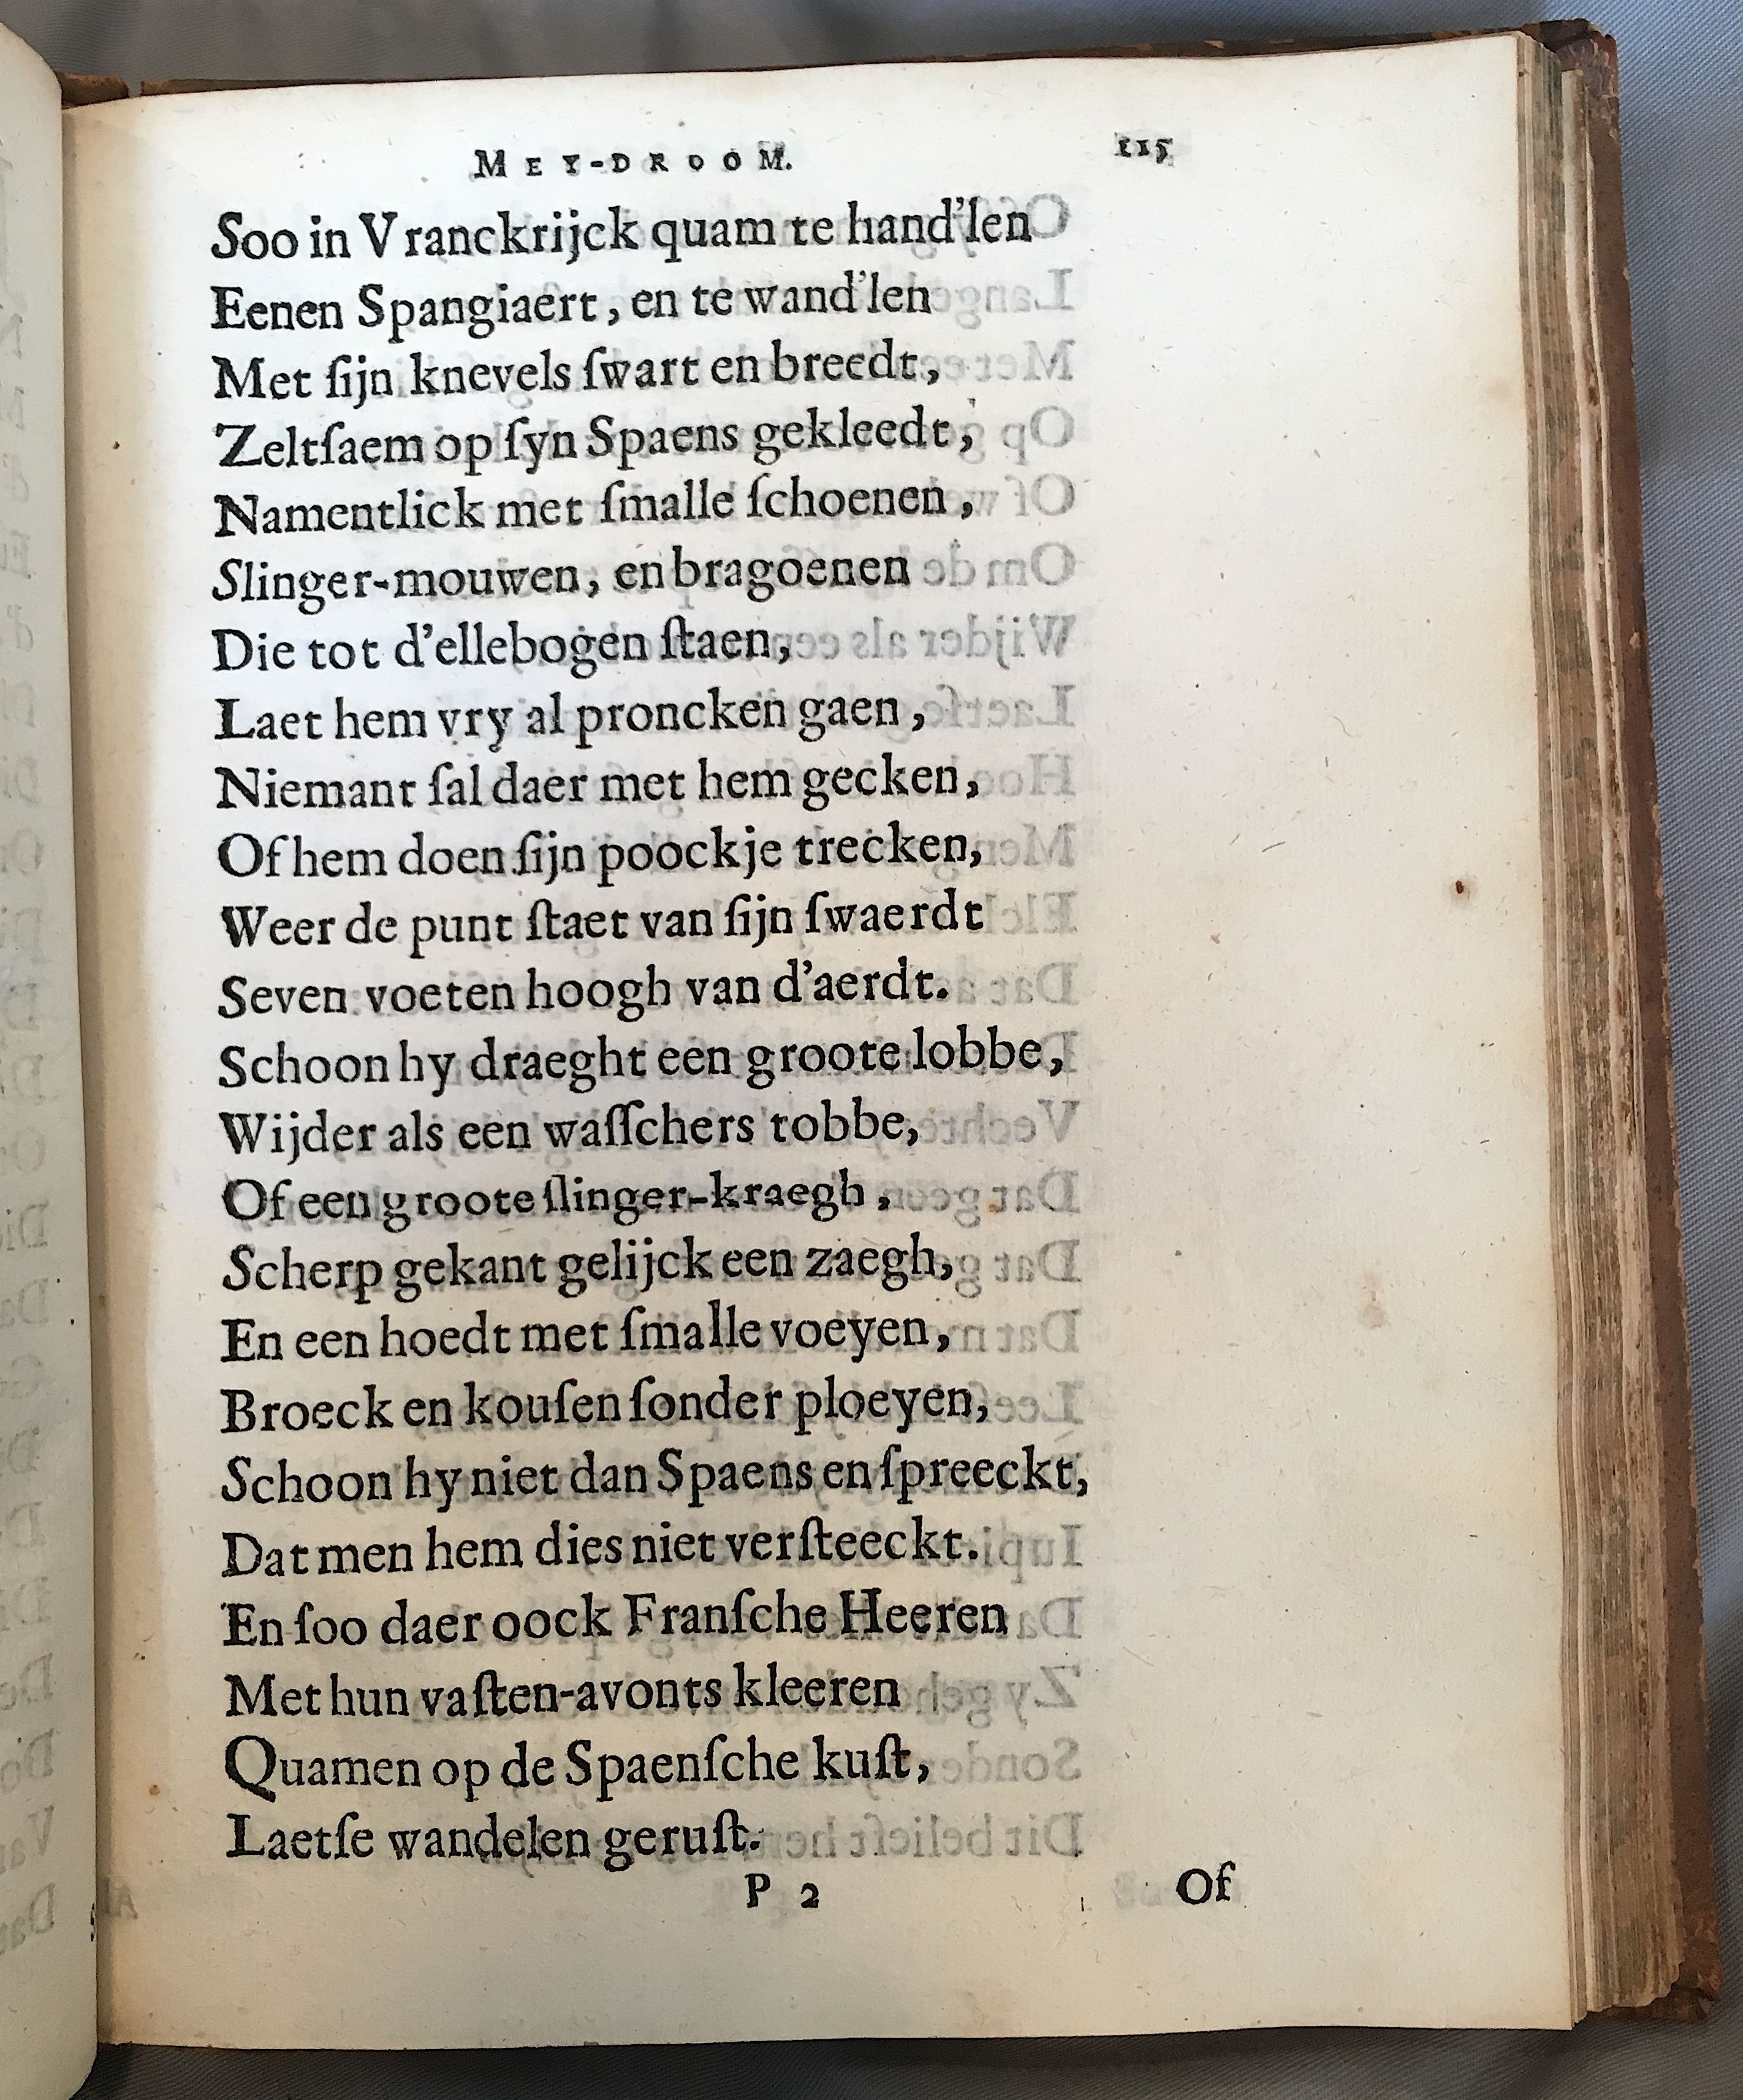 MEY-DROOM. 115
Soo in Vranckrijck quam te hand'len
Eenen Spangiaert, en te wand'len
Met ſijn knevels ſwart en breedt,
Zeltſaem op ſyn Spaens gekleedt,
Namentlick met ſmalle ſchoenen,
Slinger-mouwen, en bragoenen
Die tot d'ellebogen ſtaen,
Laet hem vry al proncken gaen,
Niemant ſal daer met hem gecken,
Of hem doen ſijn poockje trecken,
Weer de punt ſtaet van ſijn ſwaerdt
Seven voeten hoogh van d'aerdt.
Schoon hy draeght een groote lobbe,
Wijder als een waſſchers tobbe,
Of een groote ſlinger-kraegh,
Scherp gekant gelijck een zaegh,
En een hoedt met ſmalle voeyen,
Broeck en kouſen ſonder ploeyen,
Schoon hy niet dan Spaens en ſpreeckt,
Dat men hem dies niet verſteeckt.
En ſoo daer oock Franſche Heeren
Met hun vaſten-avonts kleeren
Quamen op de Spaenſche kuſt,
Laetſe wandelen geruſt.
P 2 Of